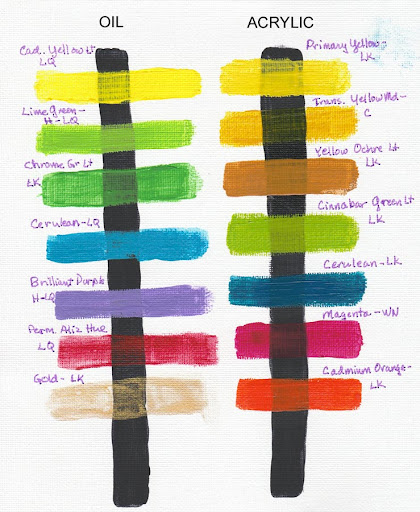 OIL
Cad. Yellow Lt
LQ
Lime Green -
H-LQ
Chrome Gr Lt
LK
Cerulean - LQ
Brilliant Purple
H-LQ
Perm. Aliz Hue
LQ
Gold - LK
ACRYLIC
Primary Yellow -
LK
Trans. Yellow Md -
C
Yellow Ochre Lt
LK
Cinnabar Green Lt
LK
Cerulean - LK
Magenta - WN
Cadmium Orange -
LK